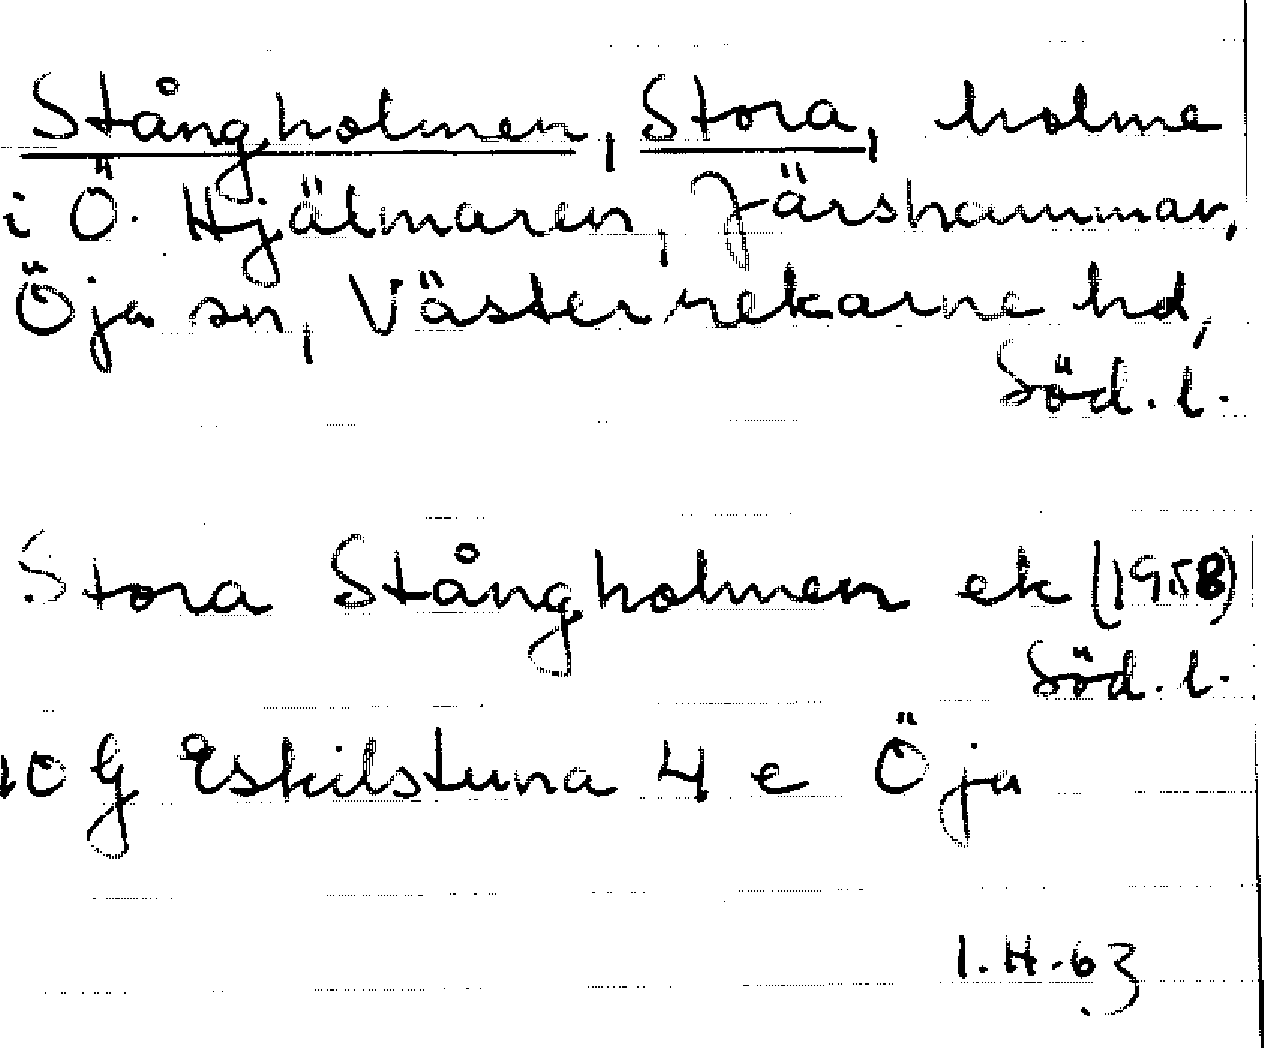 Stångholmen, Stora, holme
i Ö. Hjälmaren, Järshammar,
Öja sn, Västerrekarne hd,
Söd. l.
Stora Stångholmen ek (1958)
Söd. l.
10 G Eskilstuna 4 e Öja
I.H.63